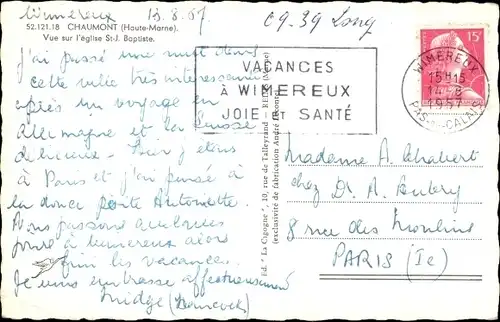 Wimereux 13.8.57
52.121.18 CHAUMONT (Haute-Marne).
Vue sur l'église St-J. Baptiste.
J'ai passé une nuit dans
cette ville très interessante
après un voyage en
Allemagne et la Suisse
délicieux. Jour j'étais
à Paris et j'ai pensé à
la douce petite Antoinette.
Nous passons quelques
jours à Wimereux alors
fini les vacances.
Je vous embrasse affectueusement
Midge (Hancock)
Ed. "La Cigogne", 10, rue de Talleyrand - REIMS (Marne)
(exclusivité de fabrication André Leconte)
09.39 Long
VACANCES
À WIMEREUX
JOIE ET SANTÉ
WIMEREUX
15H15
14-8
1957
PAS-DE-CALAIS
15F
Madame A. Chabert
chez Dr. A. Aubery
8 rue des Moulins
PARIS (Ie)